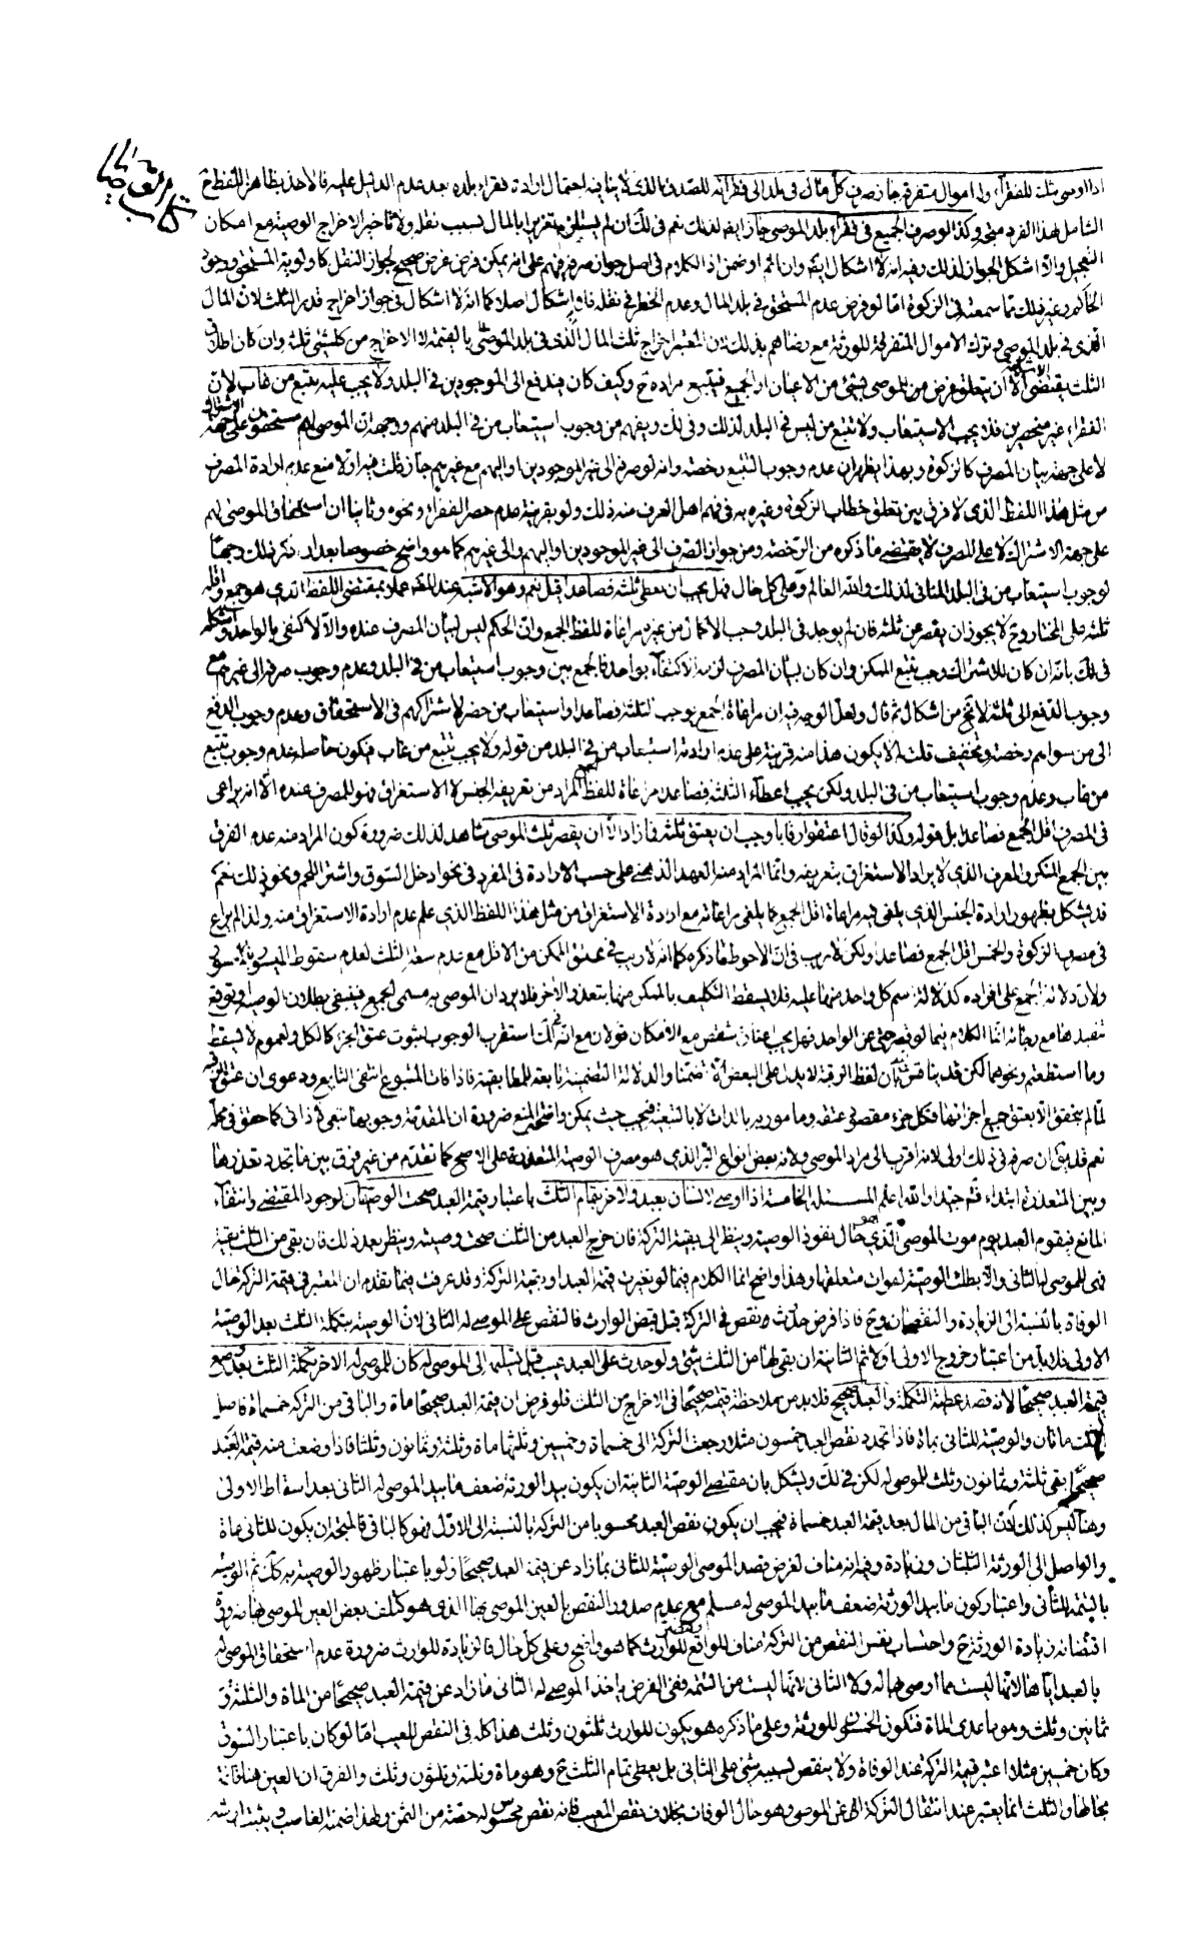 كتاب الوصايا
اذا اوصى بثلثه للفقراء وله اموال متفرقة جاز صرف كل مال في بلد الى فقرائه للصدق الذي لا ينافيه احتمال ارادة فقراء بلده بعد عدم الدليل عليه فالاخذ بظاهر اللفظ ح
الشامل لهذا الفرد متجه وكذا لو صرف الجميع في فقراء بلد الموصى جاز ايضا لذلك نعم في لك ان لم يستلزم تغريرا بالمال بسبب نقله ولا تاخيرا لاخراج الوصية مع امكان
التعجيل والا اشكل الجواز لذلك وفيه انه لا اشكال ايضا وان اثم او ضمن اذ الكلام في اصل جواز صرفه فيهم على انه يمكن فرض غرض صحيح لجواز النقل كاولوية المستحق ووجود
الحاكم وغير ذلك مما سمعته في الزكوة اما لو فرض عدم المستحق في بلد المال وعدم الخطر في نقله فلا اشكال اصلا كما انه لا اشكال في جواز اخراج قدر الثلث لان المال
الذي في بلد الموصى وترك الاموال المتفرقة للورثة مع رضاهم بذلك لان المعتبر اخراج ثلث المال الذي في بلد الموصى بالقيمة لا الاخراج من كل شئ ثلثه وان كان اطلاق
الثلث يقتضى الاشاعة الا ان يتعلق غرض من الموصى بشئ من الاعيان او الجميع فيتبع مراده ح وكيف كان فيدفع الى الموجودين في البلد ولا يجب عليه تتبع من غاب لان
الفقراء غير منحصرين فلا يجب الاستيعاب ولا تتبع من ليس في البلد لذلك وفي لك ويفهم من وجوب استيعاب من في البلد منهم ووجهه ان الموصى لهم مستحقون على جهة الاشتراك
لا على جهة بيان المصرف كالزكوة وبهذا يظهر ان عدم وجوب التتبع رخصة وانه لو صرفه الى غير الموجودين او اليهم مع غيرهم جاز قلت فيه اولا منع عدم ارادة المصرف
من مثل هذا اللفظ الذي لا فرق بين تعلق خطاب الزكوة وغيره به في فهم اهل العرف منه ذلك ولو بقرينة عدم حصر الفقراء ونحوه وثانيا ان استحقاق الموصى لهم
على جهة الاشتراك لا على المصرف لا يقتضى ما ذكره من الرخصة ومن جواز الصرف الى غير الموجودين او اليهم والى غيرهم كما هو واضح خصوصا بعد ان ذكر ذلك وجها
لوجوب استيعاب من في البلد المنافي لذلك والله العالم وعلى كل حال فهل يجب ان يعطى ثلثة فصاعدا قيل نعم وهو الاشبه عند المصنف عملا بمقتضى اللفظ الذي هو جمع واقله
ثلثة على المختار وح لا يجوز ان يقصر عن ثلثة فان لم يوجد في البلد وجب الاكمال من غيره مراعاة للفظ الجمع وان الحكم ليس لبيان المصرف عنده والا لاكتفى بالواحد واشكله
في لك بانه ان كان للاشتراك وجب تتبع الممكن وان كان بيان المصرف لزمه الاكتفاء بواحد فالجمع بين وجوب استيعاب من في البلد وعدم وجوب صرفه الى غيرهم مع
وجوب الدفع الى ثلثة لا تخ من اشكال ثم قال ولعل الوجه فيه ان مراعاة الجمع يوجب الثلثة فصاعدا واستيعاب من حضر لاشتراكهم في الاستحقاق وعدم وجوب الدفع
الى من سواهم رخصة وتخفيف قلت الا يكون هذا منه قرينة على عدم ارادة استيعاب من في البلد من قوله ولا يجب تتبع من غاب فيكون حاصله عدم وجوب تتبع
من غاب وعدم وجوب استيعاب من في البلد ولكن يجب اعطاء الثلثة فصاعدا مراعاة للفظ الجمع المراد من تعريفه الجنس لا الاستغراق فهو للمصرف عنده الا انه يراعى
في المصرف اقل الجمع فصاعدا بل قوله وكذا لو قال اعتقوا رقابا وجب ان يعتق ثلثة فما زاد الا ان يقصر ثلث الموصى شاهد لذلك ضرورة كون المراد منه عدم الفرق
بين الجمع المنكر والمعرف الذي لا يراد الاستغراق بتعريفه وانما المراد منه العهد الذهنى على حسب الارادة في المفرد في نحو ادخل السوق واشتر اللحم ونحو ذلك نعم
قد يشكل بظهور ارادة الجنس الذي يلغى فيه مراعاة اقل الجمع كما يلغى مراعاته مع ارادة الاستغراق من مثل هذا اللفظ الذي علم عدم ارادة الاستغراق منه ولذا لم يراع
في مصرف الزكوة والخمس اقل الجمع فصاعدا ولكن لا ريب في ان الاحوط ما ذكره كما انه لا ريب في عتق الممكن من الاقل مع عدم سعة الثلث لعدم سقوط الميسور بالمعسور
ولان دلالة الجمع على افراده كدلالة اسم كل واحد منها عليه فلا يسقط التكليف بالممكن منها بتعذر الاخر فلا يرد ان الموصى به مسمى الجمع فينبغى بطلان الوصية او توقع
تنفيذها مع رجائه انما الكلام فيما لو قصر حتى عن الواحد فهل يجب اعتاق شقص مع الامكان قولان مع انه في لك استقرب الوجوب لثبوت عتق الجزء كالكل ولعموم لا يسقط
وما استطعتم ونحوهما لكن قد يناقش بان لفظ الرقبة لا يدل على البعض الا تضمنا والدلالة التضمنية تابعة للمطابقية فاذا فات المتبوع انتفى التابع ودعوى ان عتق الرقبة
لما لم يتحقق الا بعتق جميع اجزائها فكل جزء مقصود عتقه ومامور به بالذات لا بالتبعية فيجب حيث يمكن واضحة المنع ضرورة ان المقدمة وجوبها تبعي لا ذاتي كما حقق في محله
نعم قد يق ان صرفه في ذلك اولى لانه اقرب الى مراد الموصى ولانه بعض انواع البر الذي هو مصرف الوصية المتعذرة على الاصح كما تقدم من غير فرق بين ما يتجدد تعذرها
وبين المتعذرة ابتداء فتم جيدا والله اعلم المسئلة الخامسة اذا اوصى لانسان بعبد ولاخر بتمام الثلث باعتبار قيمة العبد صحت الوصيتان لوجود المقتضى وانتفاء
المانع فيقوم العبد يوم موت الموصى الذي هو حال نفوذ الوصية وينظر الى بقية التركة فان خرج العبد من الثلث صحت وصيته وينظر بعد ذلك فان بقى من الثلث بقية
فهى للموصى له الثاني والا بطلت الوصية لفوات متعلقها وهذا واضح انما الكلام فيما لو تغيرت قيمة العبد او بقية التركة وقد عرفت فيما تقدم ان المعتبر في قيمة التركة حال
الوفاة بالنسبة الى الزيادة والنقصان وح فاذا فرض حدوث نقص في التركة قبل قبض الوارث فالنقص على الموصى له الثاني لان الوصية بتكملة الثلث بعد الوصية
الاولى فلا بد من اعتبار خروج الاولى اولا ثم الثانية ان بقى لها من الثلث شئ ولو حدث على العبد عيب قبل تسليمه الى الموصى له كان للموصى له الاخر تكملة الثلث بعد وضع
قيمة العبد صحيحا لانه قصد عطية التكملة والعبد صحيح فلا بد من ملاحظة قيمته صحيحا في الاخراج من الثلث فلو فرض ان قيمة العبد صحيحا ماة والباقي من التركة خمسماة فاصل
الثلث ماتان والوصية للثاني بماة فاذا تجدد نقص العبد خمسون مثلا رجعت التركة الى خمسماة وخمسين وثلثها ماة وثلثة وثمانون وثلث فاذا وضعت منه قيمة العبد
صحيحا بقى ثلثة وثمانون وثلث للموصى له لكن في لك ويشكل بان مقتضى الوصية الثانية ان يكون بيد الورثة ضعف ما بيد الموصى له الثاني بعد اسقاط الاولى
وهنا ليس كذلك لان الباقي من المال بعد قيمة العبد خمسماة فيجب ان يكون نقص العبد محسوبا من التركة بالنسبة الى الاول فهو كالباقي فالمتجه ان يكون للثاني ماة
والواصل الى الورثة الثلثان وزيادة وفيه انه مناف لغرض قصد الموصى الوصية للثاني بما زاد عن قيمة العبد صحيحا ولو باعتبار ظهور الوصية به كك ثم الوصية
بالتتمة للثاني واعتبار كون ما بيد الورثة ضعف ما بيد الموصى له مسلم مع عدم صدور النقص بالعين الموصى بها الذي هو كتلف بعض العين الموصى بها ضرورة
اقتضائه زيادة الورثة ح واحتساب نفس النقص من التركة مناف للواقع وقصد للوارث كما هو واضح وعلى كل حال فالزيادة للوارث ضرورة عدم استحقاق الموصى له
بالعبد اياها لانها ليست مما اوصى بها له ولا الثاني لانها ليست من التتمة ففى الفرض ياخذ الموصى له الثاني ما زاد عن قيمة العبد صحيحا من الماة والثلثة و
ثمانين وثلث وهو ما عدى الماة فتكون الخمسون للورثة وعلى ما ذكره هو يكون للوارث ثلثون وثلث هذا كله في النقص للعيب اما لو كان باعتبار السوق
وكان خمسين مثلا اعتبر قيمة التركة عند الوفاة ولا ينقص لسببه شئ على الثاني بل يعطى تمام الثلث ح وهو ماة وثلثة وثلثون وثلث والفرق ان العين هنا قائمة
بحالها والثلث انما يعتبر عند انتقال التركة الى غير الموصى وهو حال الوفاة بخلاف نقص المعيب فانه نقص محسوس له حصة من الثمن ولهذا ضمنه الغاصب ويثبت ارشه